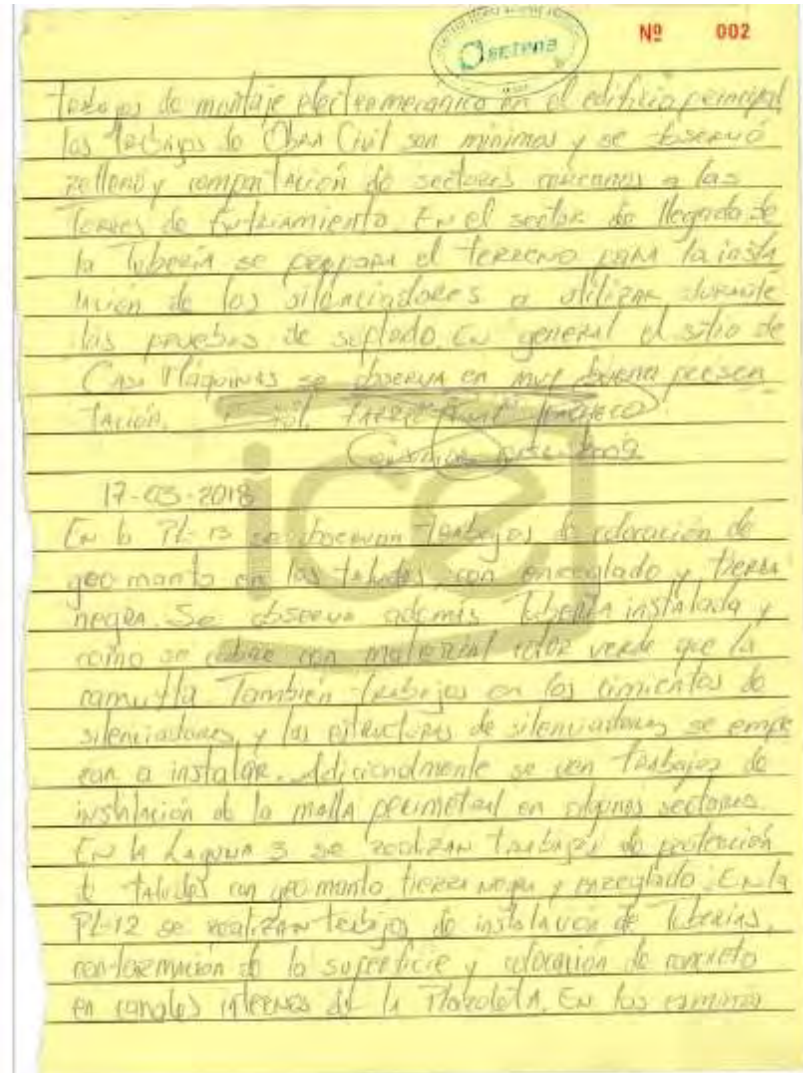 setena
Nº 002
trabajos de montaje electromecanico en el edificio principal
los trabajos de Obra Civil son mínimos y se observó
relleno y compactación de sectores cercanos a las
Torres de Enfriamiento. En el sector de llegada de
la Tubería se prepara el terreno para la insta
lación de los silenciadores a utilizar durante
las pruebas de soplado. En general el sitio de
Casa Máquinas se observa en muy buena presen
tación.
ice
17-03-2018
En la PL-13 se observan trabajos de colocación de
geo manto en los taludes, con enzeglado y tierra
negra. Se observa además Tubería instalada y
como se cubre con material color verde que la
camufla También trabajos en los cimientos de
silenciadores, y las estructuras de silenciadores se empe
zan a instalar. Adicionalmente se ven trabajos de
instalación de la malla perimetral en algunos sectores.
En la Laguna 3 se realizan trabajos de protección
de taludes con geo manto, tierra negra y enzeglado. En la
PL-12 se realizan trabajos de instalación de tuberías,
conformación de la superficie y colocación de concreto
en canales internos de la Plazoleta. En los caminos